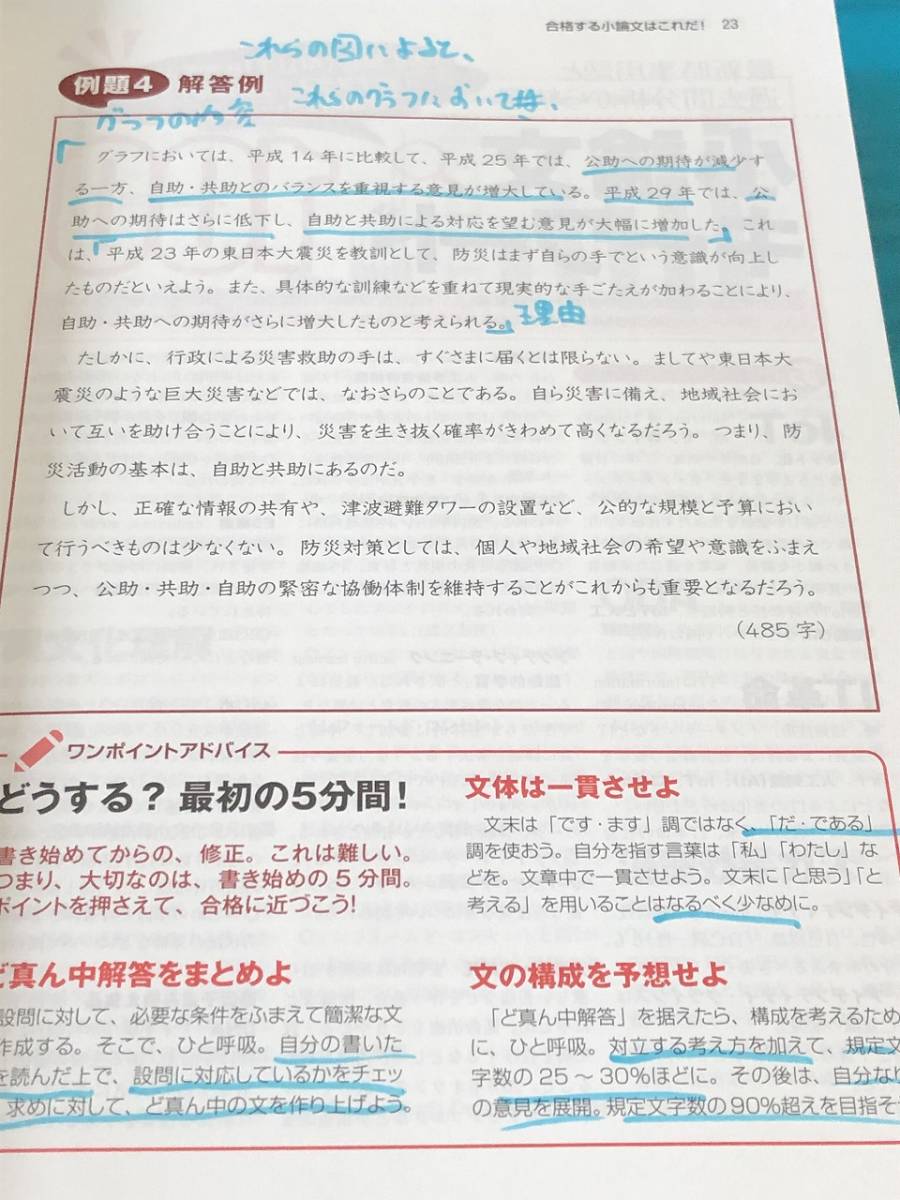 合格する小論文はこれだ! 23
これらの図によると、
例題4 解答例
これらのグラフにおいては、
グラフの内容
グラフにおいては、平成14年に比較して、平成25年では、公助への期待が減少す
る一方、自助・共助とのバランスを重視する意見が増大している。平成29年では、公
助への期待はさらに低下し、自助と共助による対応を望む意見が大幅に増加した。これ
は、平成23年の東日本大震災を教訓として、防災はまず自らの手でという意識が向上し
たものだといえよう。また、具体的な訓練などを重ねて現実的な手ごたえが加わることにより、
自助・共助への期待がさらに増大したものと考えられる。
理由
たしかに、行政による災害救助の手は、すぐさまに届くとは限らない。ましてや東日本大
震災のような巨大災害などでは、なおさらのことである。自ら災害に備え、地域社会にお
いて互いを助け合うことにより、災害を生き抜く確率がきわめて高くなるだろう。つまり、防
災活動の基本は、自助と共助にあるのだ。
しかし、正確な情報の共有や、津波避難タワーの設置など、公的な規模と予算におい
て行うべきものは少なくない。防災対策としては、個人や地域社会の希望や意識をふまえ
つつ、公助・共助・自助の緊密な協働体制を維持することがこれからも重要となるだろう。
(485字)
ワンポイントアドバイス
どうする?最初の5分間!
書き始めてからの、修正。これは難しい。
つまり、大切なのは、書き始めの5分間。
ポイントを押さえて、合格に近づこう!
ど真ん中解答をまとめよ
設問に対して、必要な条件をふまえて簡潔な文
作成する。そこで、ひと呼吸。自分の書いた
を読んだ上で、設問に対応しているかをチェッ
求めに対して、ど真ん中の文を作り上げよう。
文体は一貫させよ
文末は「です・ます」調ではなく、「だ・である」
調を使おう。自分を指す言葉は「私」「わたし」な
どを。文章中で一貫させよう。文末に「と思う」「と
考える」を用いることはなるべく少なめに。
文の構成を予想せよ
「ど真ん中解答」を据えたら、構成を考えるため
に、ひと呼吸。対立する考え方を加えて、規定文
字数の25～30%ほどに。その後は、自分なり
の意見を展開。規定文字数の90%超えを目指そ